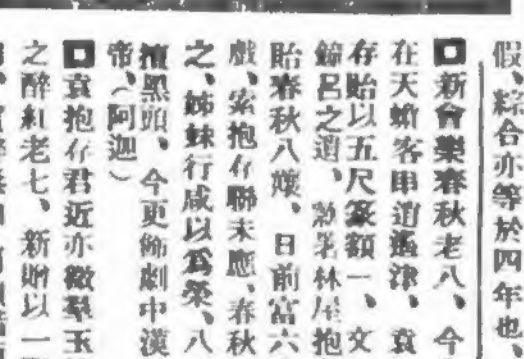 假、綜合亦等於四年也、
新會樂春秋老八、今
在天蟾客串逍遙津、袁
存貽以五尺篆額一、文
鐘呂之遺、
林屋抱
貽春秋八孃、日前富六
戲、索抱存聯未應、春秋
之、姊妹行咸以爲榮、八
擅黑頭、今更飾劇中漢
帝、（阿迦）
袁抱存君近亦徵羣玉
之醉紅老七、新贈以一